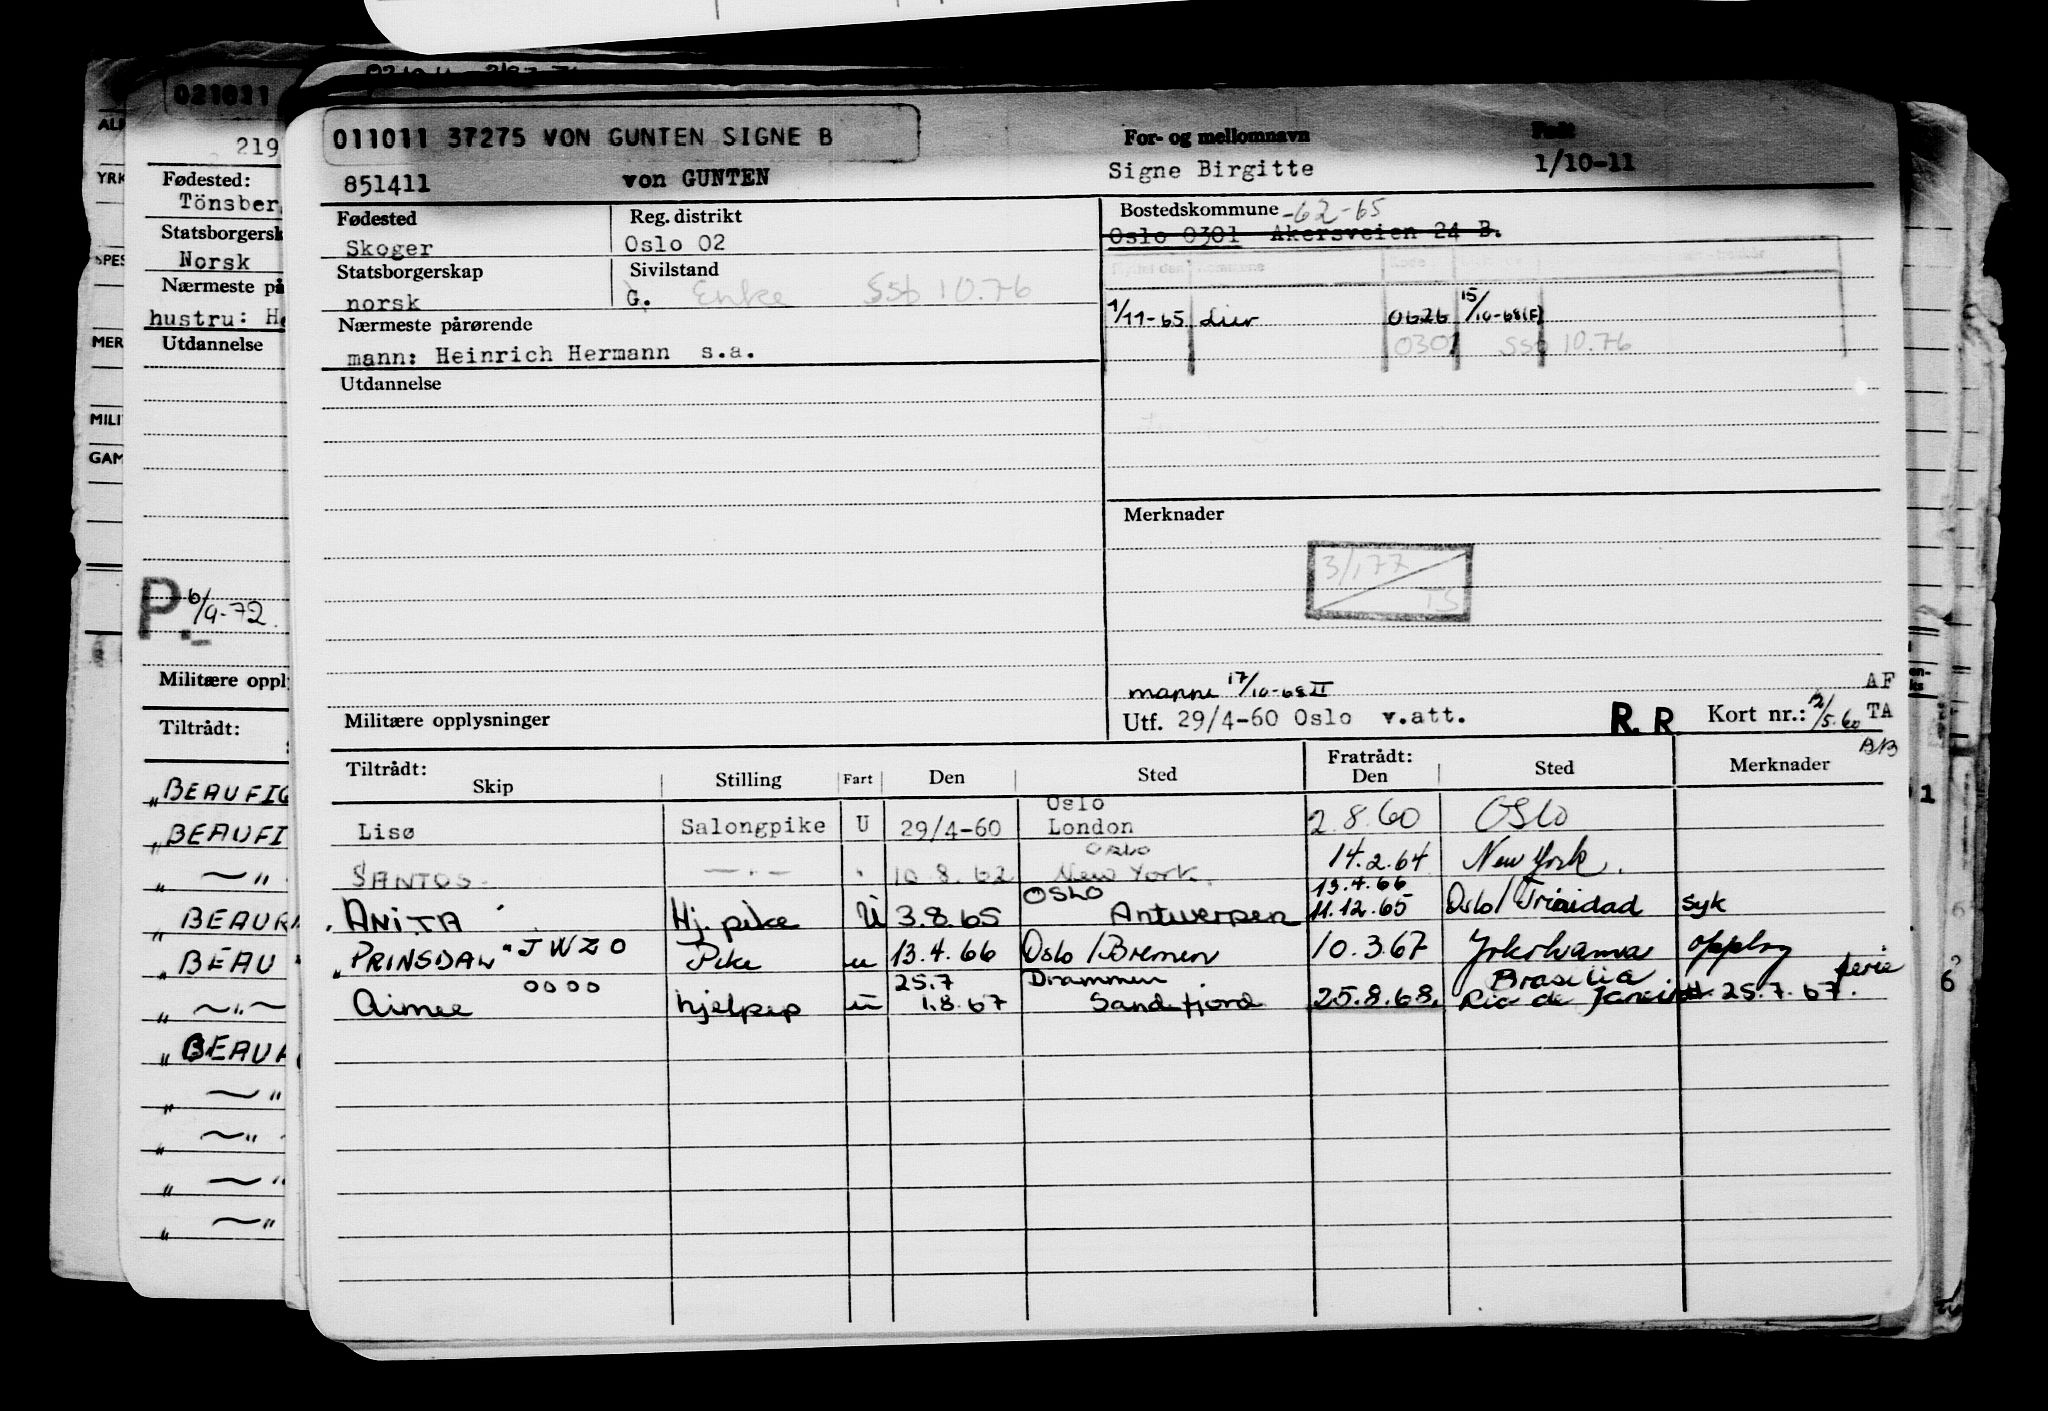 021011
219
Fødested:
Tönsber
Statsborgersk
Norsk
Nærmeste på
hustru: H
Utdannelse
P. 6/9-72
Militære oppl
Tiltrådt:
" BEAUFI
" BEAUFI
" —"
" BEAUR
" BEAU
" —"—
" BEAU
" —"
" —"
" —"
" —"
YRK
MER
MILI
GAM
011011 37275 VON GUNTEN SIGNE B
For- og mellomnavn
Født
851411 von GUNTEN Signe Birgitte 1/10-11
Fødested Reg. distrikt Bostedskommune -62-65
Skoger Oslo 02 Oslo 0301 Akersveien 24 B.
Statsborgerskap Sivilstand
norsk G. Enke SSb 10.76
1/11-65 Lier 0626 15/10-68(F)
Nærmeste pårørende
0301 SSb 10.76
mann: Heinrich Hermann s.a.
Utdannelse
Merknader
3/1 77
TS
manne 17/10-68 II
AF
Militære opplysninger Utf. 29/4-60 Oslo v.att. R. R Kort nr.: 2/5.60 TA
BB
Tiltrådt: Fratrådt:
Skip Stilling Fart Den Sted Den Sted Merknader
Oslo
Lisø Salongpike U 29/4-60 London 2.8.60 Oslo
Oslo
SANTOS —.— 10.8.62 New York 14.2.64 New York.
OSLO 13.4.66
ANITA Hj. pike U 3.8.65 Antwerpen 11.12.65 Oslo/Trinidad syk
" PRINSDAL " JWZO Pike u 13.4.66 Oslo/Bremen 10.3.67 Yokohama oppbrg
oooo 25.7 Drammen Brasilia ferie
Aimee hjelpep u 1.8.67 Sandefjord 25.8.68. Rio de Janeiro 25.7.67.